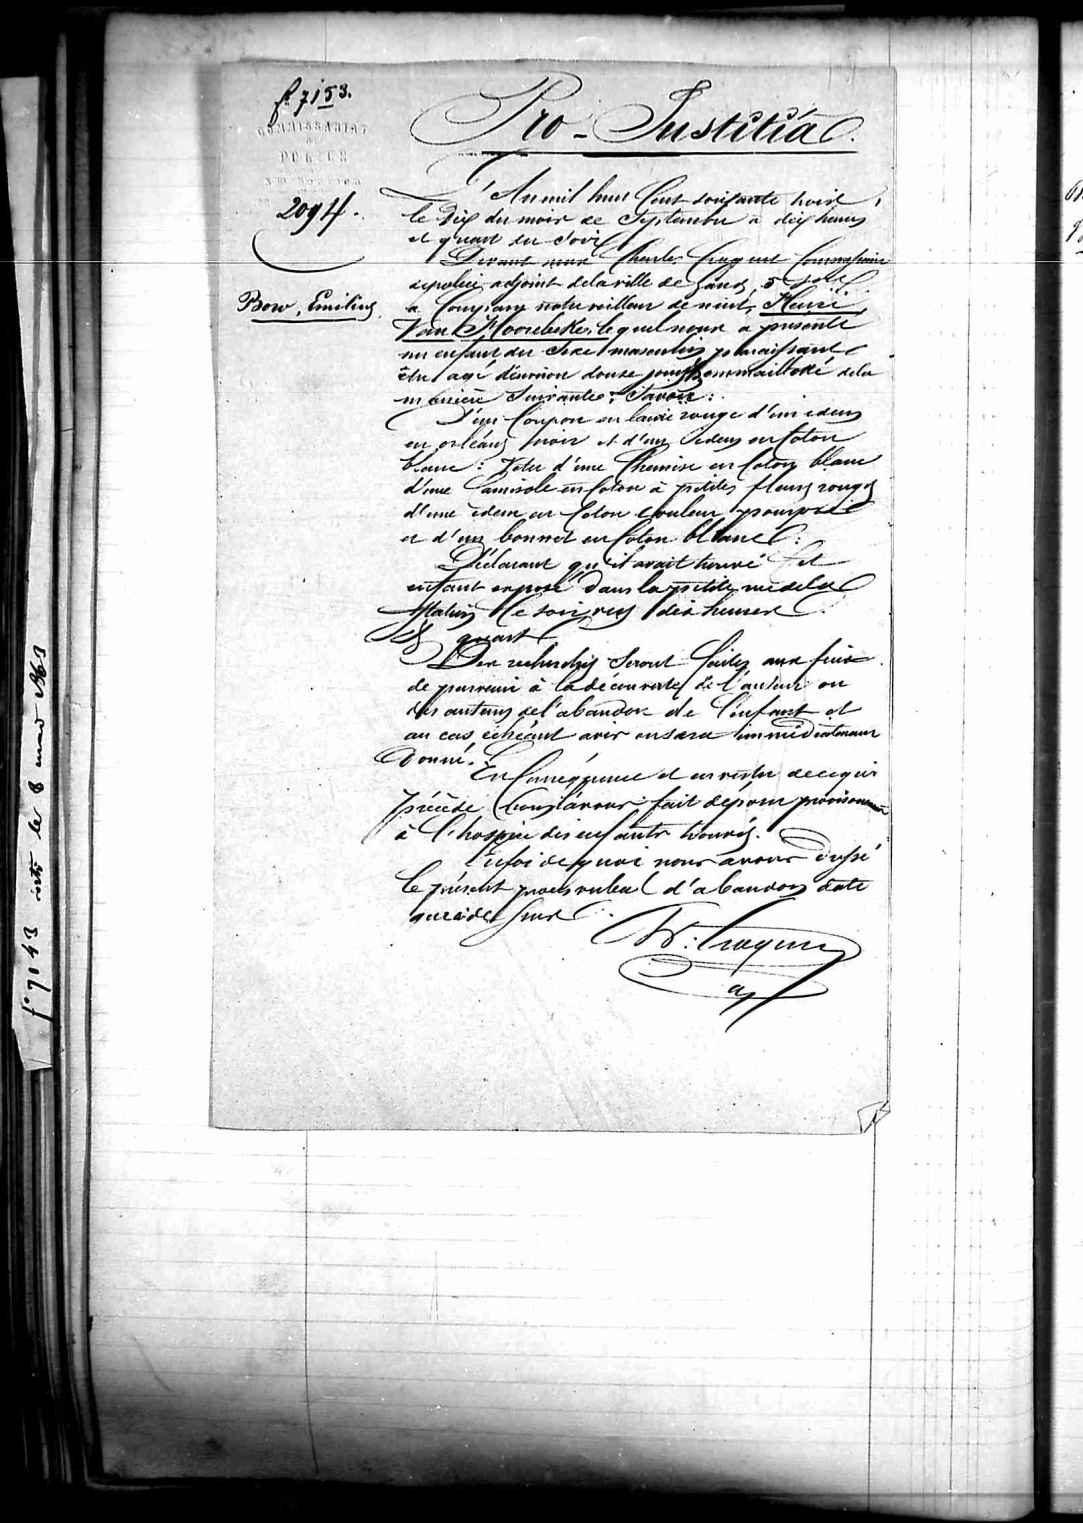 f° 7153.
COMMISSARIAT
DE
POLICE
2094.
Bow, Emilius.
Pro-Justitia.
L'An mil huit Cent soixante trois,
le dix du mois de Septembre à dix heures
et quart du soir
Devant nous Charles Commissaire
de police adjoint de la ville de Gand, 5e
a Comparu notre veilleur de nuit, Henri
Van Hoorebeke, lequel nous a présenté
un enfant du sexe masculin paraissant
être agé d'environ douze jours emmailloté de la
manière Suivante: Savoir:
D'un Coupon en laine rouge d'un idem
en orléans noir et d'un idem en Coton
blanc: Vetu d'une Chemise en Coton blanc
d'une Camisole en Coton à petites fleurs rouges
d'une idem en Coton couleur pourpre
et d'un bonnet en Coton blanc:
Déclarant qu'il avait trouvé Cet
enfant exposé dans la petite rue de la
Station Ce soir vers dix heures
& quart
Des recherches Seront faites aux fins
de parvenir à la découverte de l'auteur ou
des auteurs de l'abandon de l'enfant et
au cas échéant avis en sera immédiatement
Donné.
En Conséquence et en vertu de ce qui
précède l'avons fait déposer provisoirement
à l'hospice des enfants trouvés.
En foi de quoi nous avons dressé
le présent procès verbal d'abandon date
que ci dessus
f° 7143 le 8 mars 1863